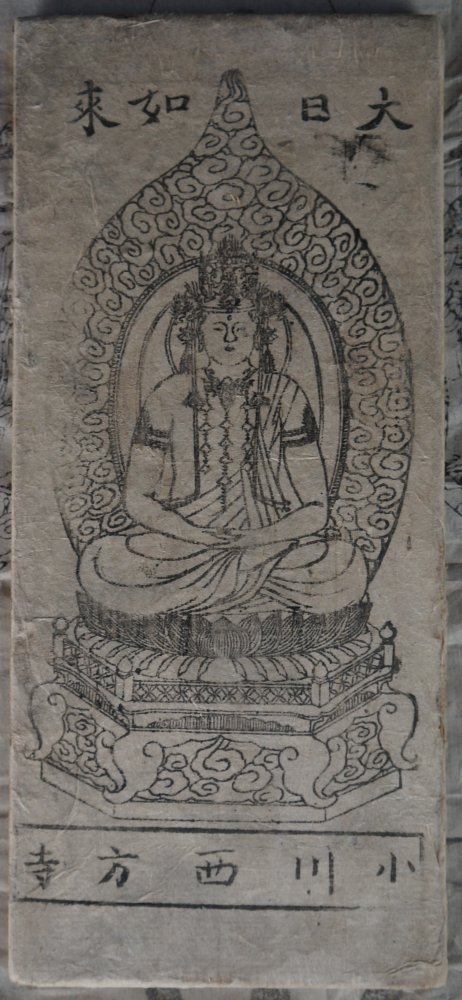 大日如來
小川西方寺